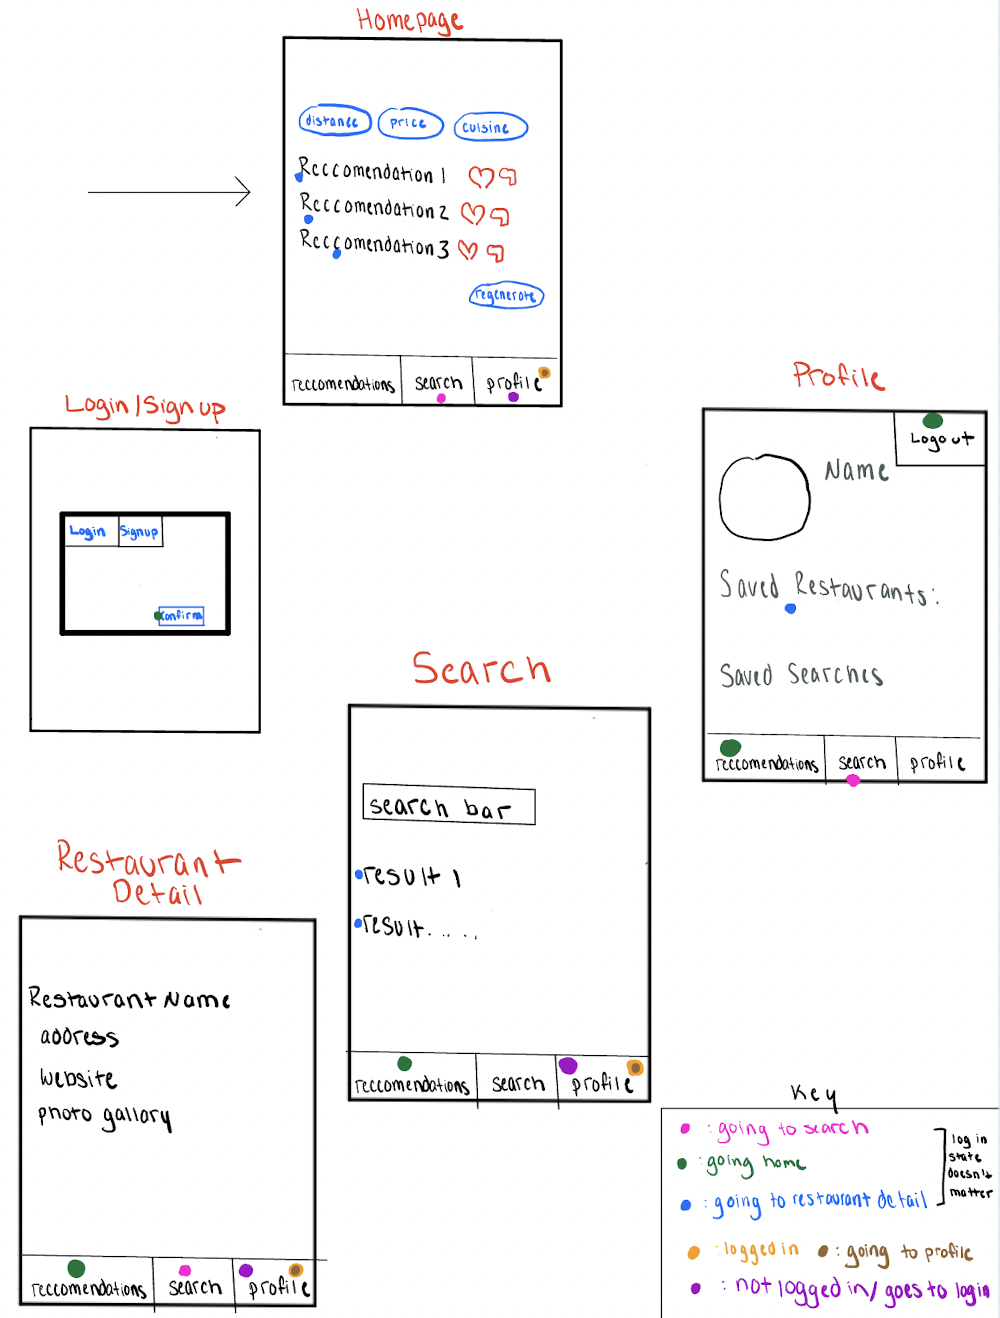 Homepage
distance price cuisine
Reccomendation 1
Reccomendation 2
Reccomendation 3
regenerate
reccomendations search profile
Login/Signup
Login Signup
Confirm
Profile
Logout
Name
Saved Restaurants:
Saved Searches
reccomendations search profile
Search
search bar
result 1
result.....
reccomendations search profile
Restaurant
Detail
Restaurant Name
address
website
photo gallary
reccomendations search profile
Key
: going to search
: going home
: going to restaurant detail
log in
state
doesn't
matter
: logged in : going to profile
: not logged in/ goes to login